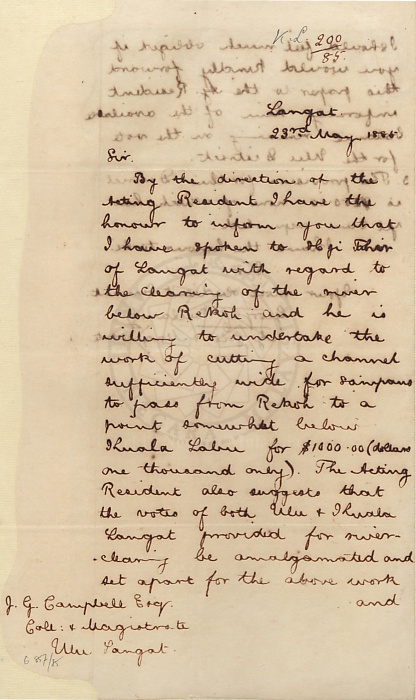 K.L. 200/85.
Langat
23rd May 1885
Sir.
By the direction of the
Acting Resident I have the
honour to inform you that
I have spoken to Haji Tahir
of Langat with regard to
the clearing of the river
below Rekoh and he is
willing to undertake the
work of cutting a channel
sufficiently wide for sampans
to pass from Rekoh to a
point somewhat below
Khuala Labu for $1000.00 (dollars
one thousand only). The Acting
Resident also suggests that
the votes of both Ulu & Khuala
Langat provided for river-
clearing be amalgamated and
set apart for the above work
and
J. G. Campbell Esq.
Coll: & Magistrate
Ulu Langat.